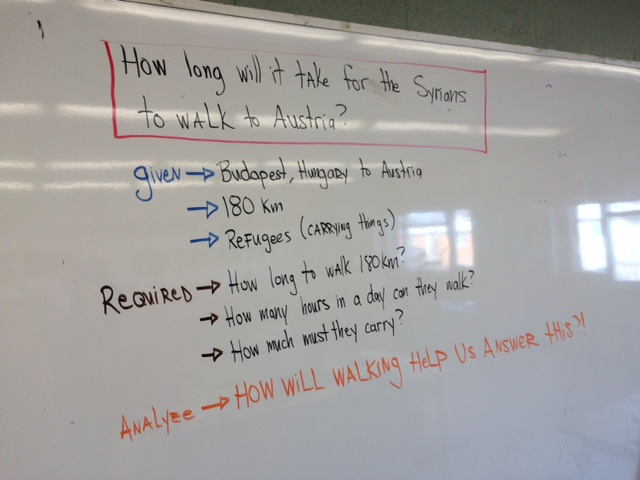 How long will it take for the Syrians
to walk to Austria?
given → Budapest, Hungary to Austria
→ 180 km
→ Refugees (carrying things)
Required → How long to walk 180km?
→ How many hours in a day can they walk?
→ How much must they carry?
Analyze → HOW WILL WALKING HELP US ANSWER THIS?!